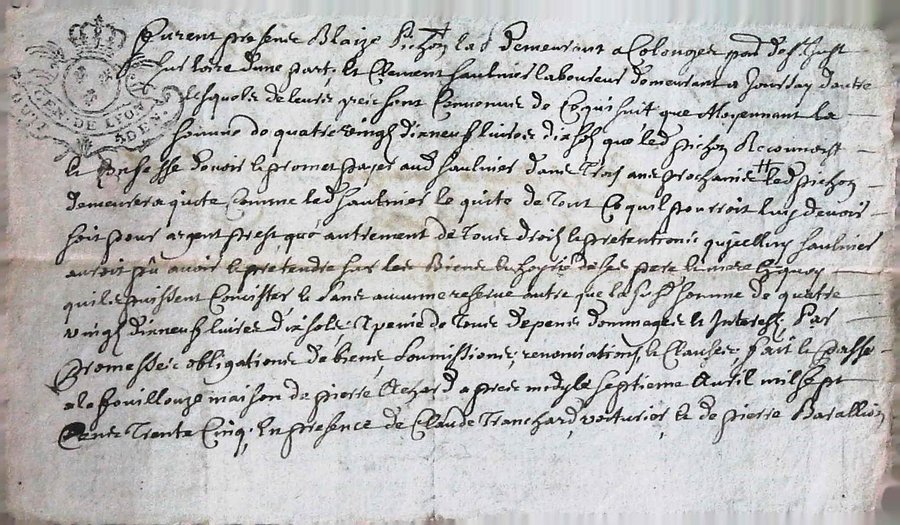 GEN DE LYON
DEN
Furent presens Blaize Pichon lab demeurant a Colonges par de st Just
sur loire d'une part, Et Clement saulnier laboureur demeurant a Joursay d'autre
lesquels de leurs gré sont Convenus de Ce qui suit que Moyennant la
somme de quatre vingt dixneuf livres dix sols que led pichon Reconnoit
et Confesse devoir et promet payer aud saulnier dans Trois ans prochains led pichon
demeurera quitte Comme led saulnier le quitte de Tout Ce quil pourroit luy devoir
soit pour argent prest que autrement de Tous droits et pretentions qu'jcelluy saulnier
auroit pû avoir et pretendre sur les Biens de ses pere et mere En quoy
quils puissent Concister et Sans aucunne reserve autre que la susd somme de quatre
vingt dixneuf livres dix sols A peine de Tous depens dommages et Interests, Par
promesses obligations de biens, soumissions, renonciations, et Clauses, fait et Passé
a la fouillouze maison de pierre Achard apres midy le septieme Avril mil sept
Cens Trente Cinq, En presence de Claude Tranchard voiturier et de pierre